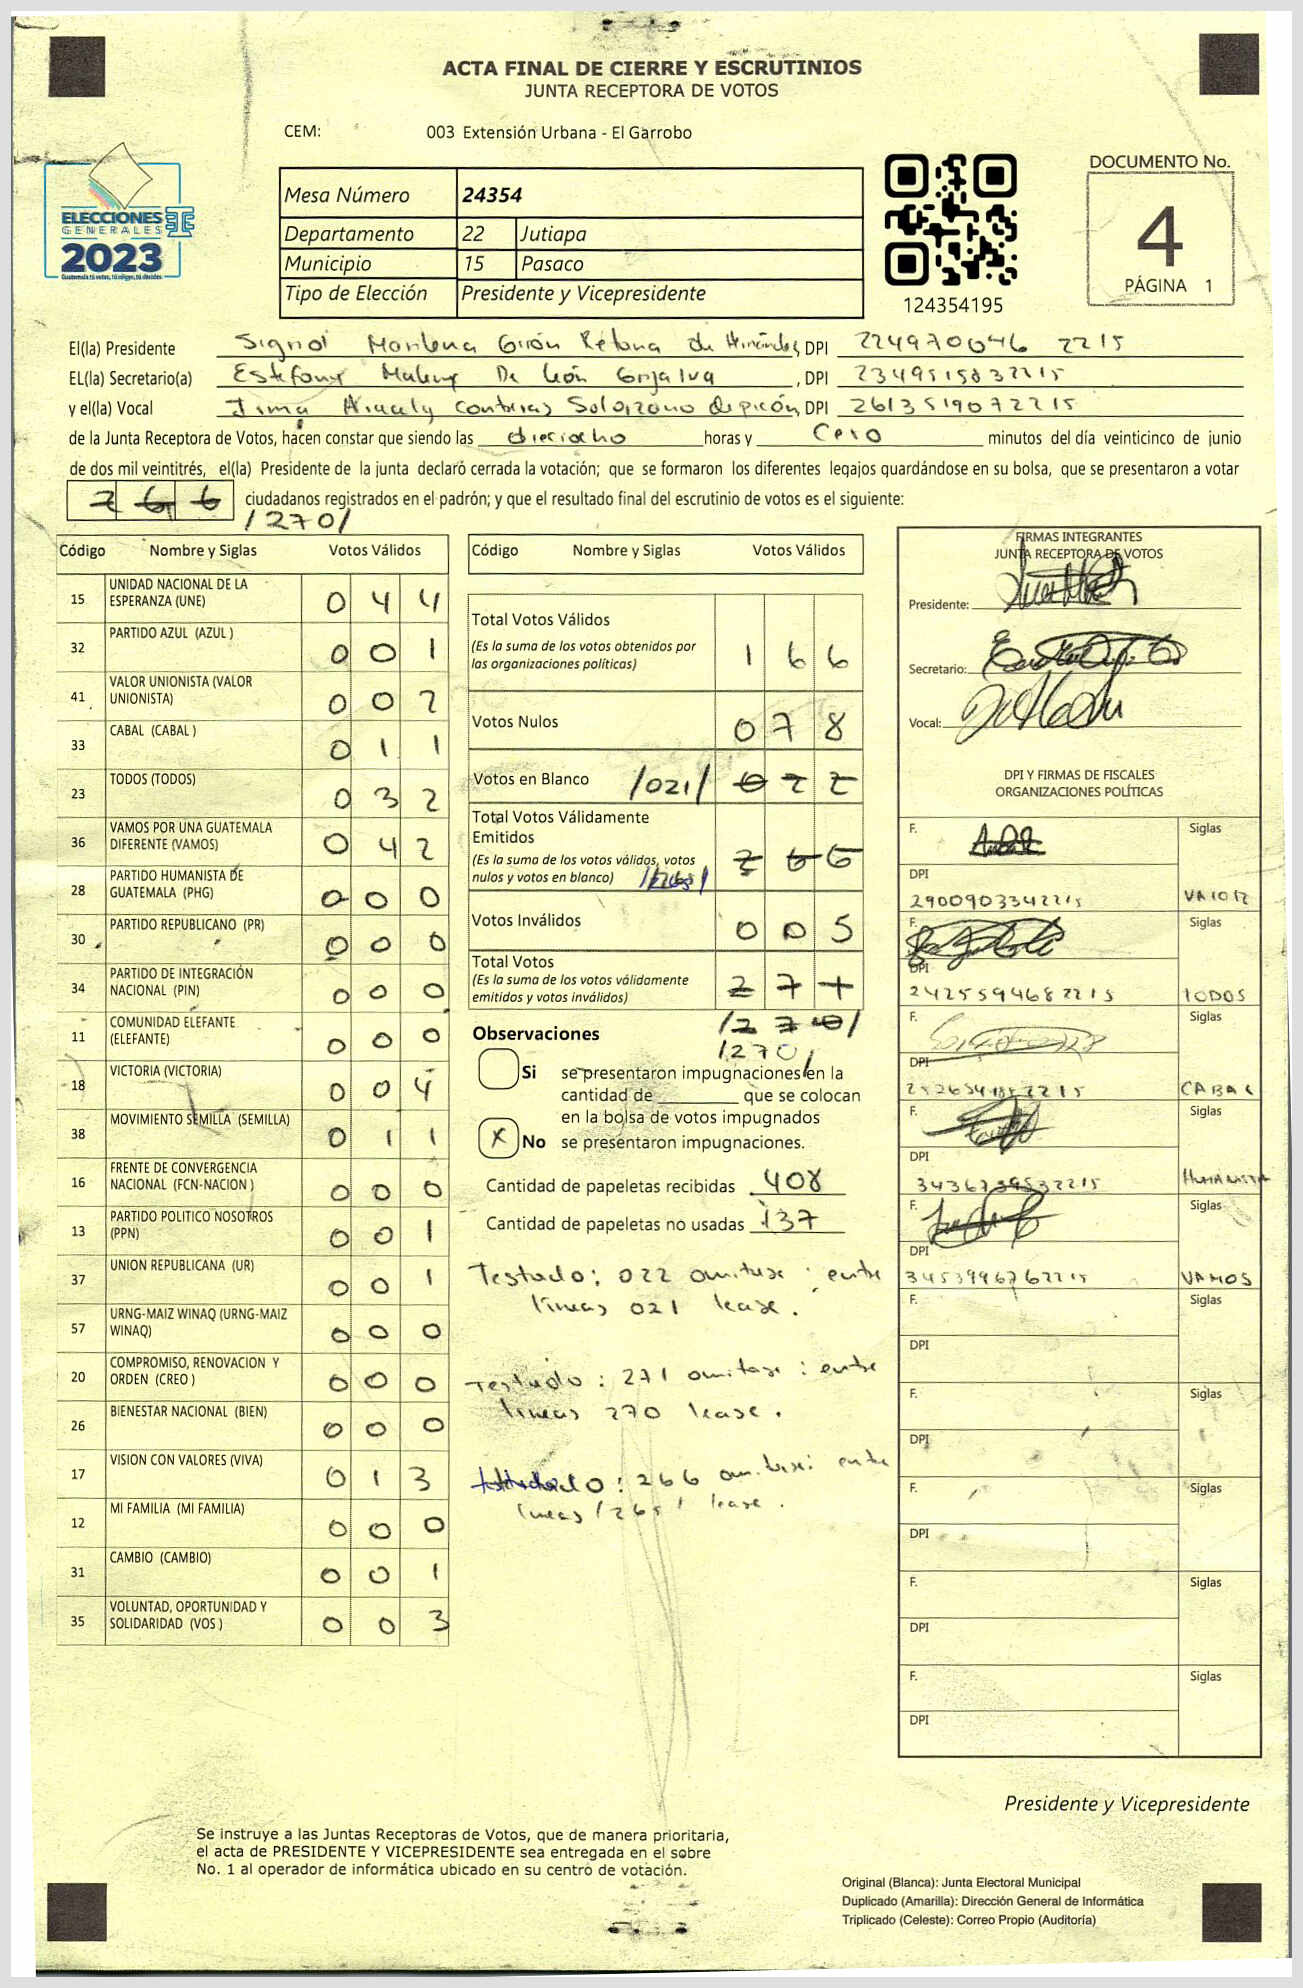 ACTA FINAL DE CIERRE Y ESCRUTINIOS
JUNTA RECEPTORA DE VOTOS
CEM: 003 Extensión Urbana - El Garrobo
ELECCIONES
GENERALES
2023
Guatemala tú votas, tú eliges, tú decides
Mesa Número 24354
Departamento 22 Jutiapa
Municipio 15 Pasaco
Tipo de Elección Presidente y Vicepresidente
124354195
DOCUMENTO No.
4
PÁGINA 1
El(la) Presidente Girón Retana de Hernández, DPI 224970046 2215
EL(la) Secretario(a) De León, DPI 2349515832215
y el(la) Vocal Aracely Contreras Solorzano de picón, DPI 2613519072215
de la Junta Receptora de Votos, hacen constar que siendo las dieciocho horas y cero minutos del día veinticinco de junio
de dos mil veintitrés, el(la) Presidente de la junta declaró cerrada la votación; que se formaron los diferentes legajos guardándose en su bolsa, que se presentaron a votar
266 ciudadanos registrados en el padrón; y que el resultado final del escrutinio de votos es el siguiente:
/270/
Código Nombre y Siglas Votos Válidos
15 UNIDAD NACIONAL DE LA ESPERANZA (UNE) 0 4 4
32 PARTIDO AZUL (AZUL ) 0 0 1
41 VALOR UNIONISTA (VALOR UNIONISTA) 0 0 2
33 CABAL (CABAL ) 0 1 1
23 TODOS (TODOS) 0 3 2
36 VAMOS POR UNA GUATEMALA DIFERENTE (VAMOS) 0 4 2
28 PARTIDO HUMANISTA DE GUATEMALA (PHG) 0 0 0
30 PARTIDO REPUBLICANO (PR) 0 0 0
34 PARTIDO DE INTEGRACIÓN NACIONAL (PIN) 0 0 0
11 COMUNIDAD ELEFANTE (ELEFANTE) 0 0 0
18 VICTORIA (VICTORIA) 0 0 4
38 MOVIMIENTO SEMILLA (SEMILLA) 0 1 1
16 FRENTE DE CONVERGENCIA NACIONAL (FCN-NACION ) 0 0 0
13 PARTIDO POLITICO NOSOTROS (PPN) 0 0 1
37 UNION REPUBLICANA (UR) 0 0 1
57 URNG-MAIZ WINAQ (URNG-MAIZ WINAQ) 0 0 0
20 COMPROMISO, RENOVACION Y ORDEN (CREO ) 0 0 0
26 BIENESTAR NACIONAL (BIEN) 0 0 0
17 VISION CON VALORES (VIVA) 0 1 3
12 MI FAMILIA (MI FAMILIA) 0 0 0
31 CAMBIO (CAMBIO) 0 0 1
35 VOLUNTAD, OPORTUNIDAD Y SOLIDARIDAD (VOS ) 0 0 3
Código Nombre y Siglas Votos Válidos
Total Votos Válidos 1 6 6
(Es la suma de los votos obtenidos por
las organizaciones políticas)
Votos Nulos 0 7 8
Votos en Blanco /021/ 0 2 2
Total Votos Válidamente
Emitidos 2 6 6
(Es la suma de los votos válidos, votos
nulos y votos en blanco) /265/
Votos Inválidos 0 0 5
Total Votos 2 7 1
(Es la suma de los votos válidamente
emitidos y votos inválidos)
/270/
/270/
Observaciones
Si se presentaron impugnaciones en la
cantidad de que se colocan
en la bolsa de votos impugnados
X No se presentaron impugnaciones.
Cantidad de papeletas recibidas 408
Cantidad de papeletas no usadas 137
Testado: 022 omitase : entre
lineas 021 lease.
Testado : 271 omitase : entre
lineas 270 lease.
testado : 266 omitase: entre
lineas /265/ lease.
FIRMAS INTEGRANTES
JUNTA RECEPTORA DE VOTOS
Presidente:
Secretario:
Vocal:
DPI Y FIRMAS DE FISCALES
ORGANIZACIONES POLÍTICAS
F. Siglas
DPI
2900903342215 VALOR
F. Siglas
DPI
2425594682215 TODOS
F. Siglas
DPI
CABAL
F. Siglas
DPI
3436739532215 HUMANISTA
F. Siglas
DPI
3453996762215 VAMOS
F. Siglas
DPI
F. Siglas
DPI
F. Siglas
DPI
F. Siglas
DPI
F. Siglas
DPI
Presidente y Vicepresidente
Se instruye a las Juntas Receptoras de Votos, que de manera prioritaria,
el acta de PRESIDENTE Y VICEPRESIDENTE sea entregada en el sobre
No. 1 al operador de informática ubicado en su centro de votación.
Original (Blanca): Junta Electoral Municipal
Duplicado (Amarilla): Dirección General de Informática
Triplicado (Celeste): Correo Propio (Auditoría)